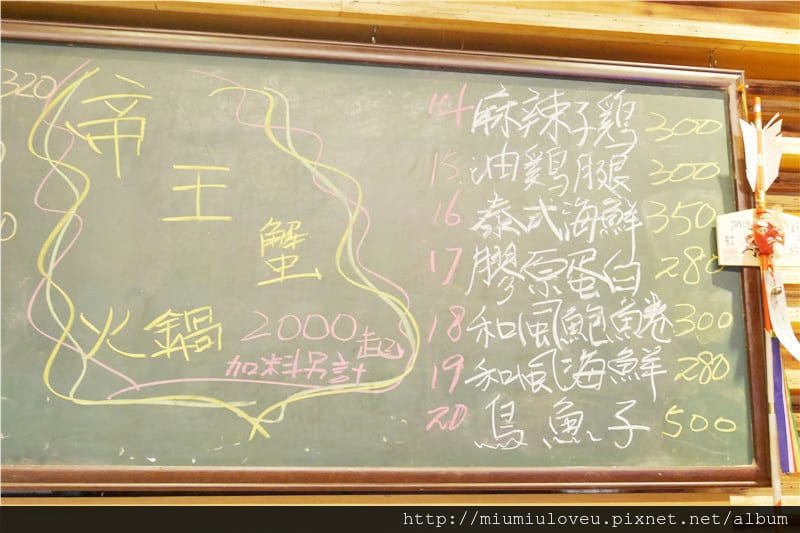 320
帝
王
蟹
火鍋 2000起
加料另計
14 麻辣子鷄 300
15. 油鷄腿 300
16 泰式海鮮 350
17 膠原蛋白 280
18 和風鮑魚捲 300
19 和風海鮮 280
20 烏魚子 500
http://miumiuloveu.pixnet.net/album